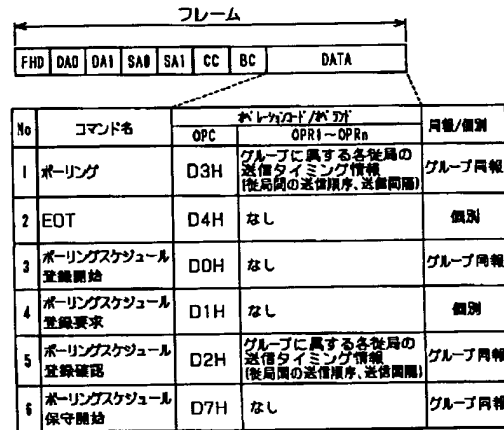 フレーム
FHD DA0 DA1 SA0 SA1 CC BC DATA
No コマンド名 オペレーションコード/オペランド 同報/個別
OPC OPR1~OPRn
1 ポーリング D3H グループに属する各従局の送信タイミング情報(従局間の送信順序、送信間隔) グループ同報
2 EOT D4H なし 個別
3 ポーリングスケジュール登録開始 D0H なし グループ同報
4 ポーリングスケジュール登録要求 D1H なし 個別
5 ポーリングスケジュール登録確認 D2H グループに属する各従局の送信タイミング情報(従局間の送信順序、送信間隔) グループ同報
6 ポーリングスケジュール保守開始 D7H なし グループ同報